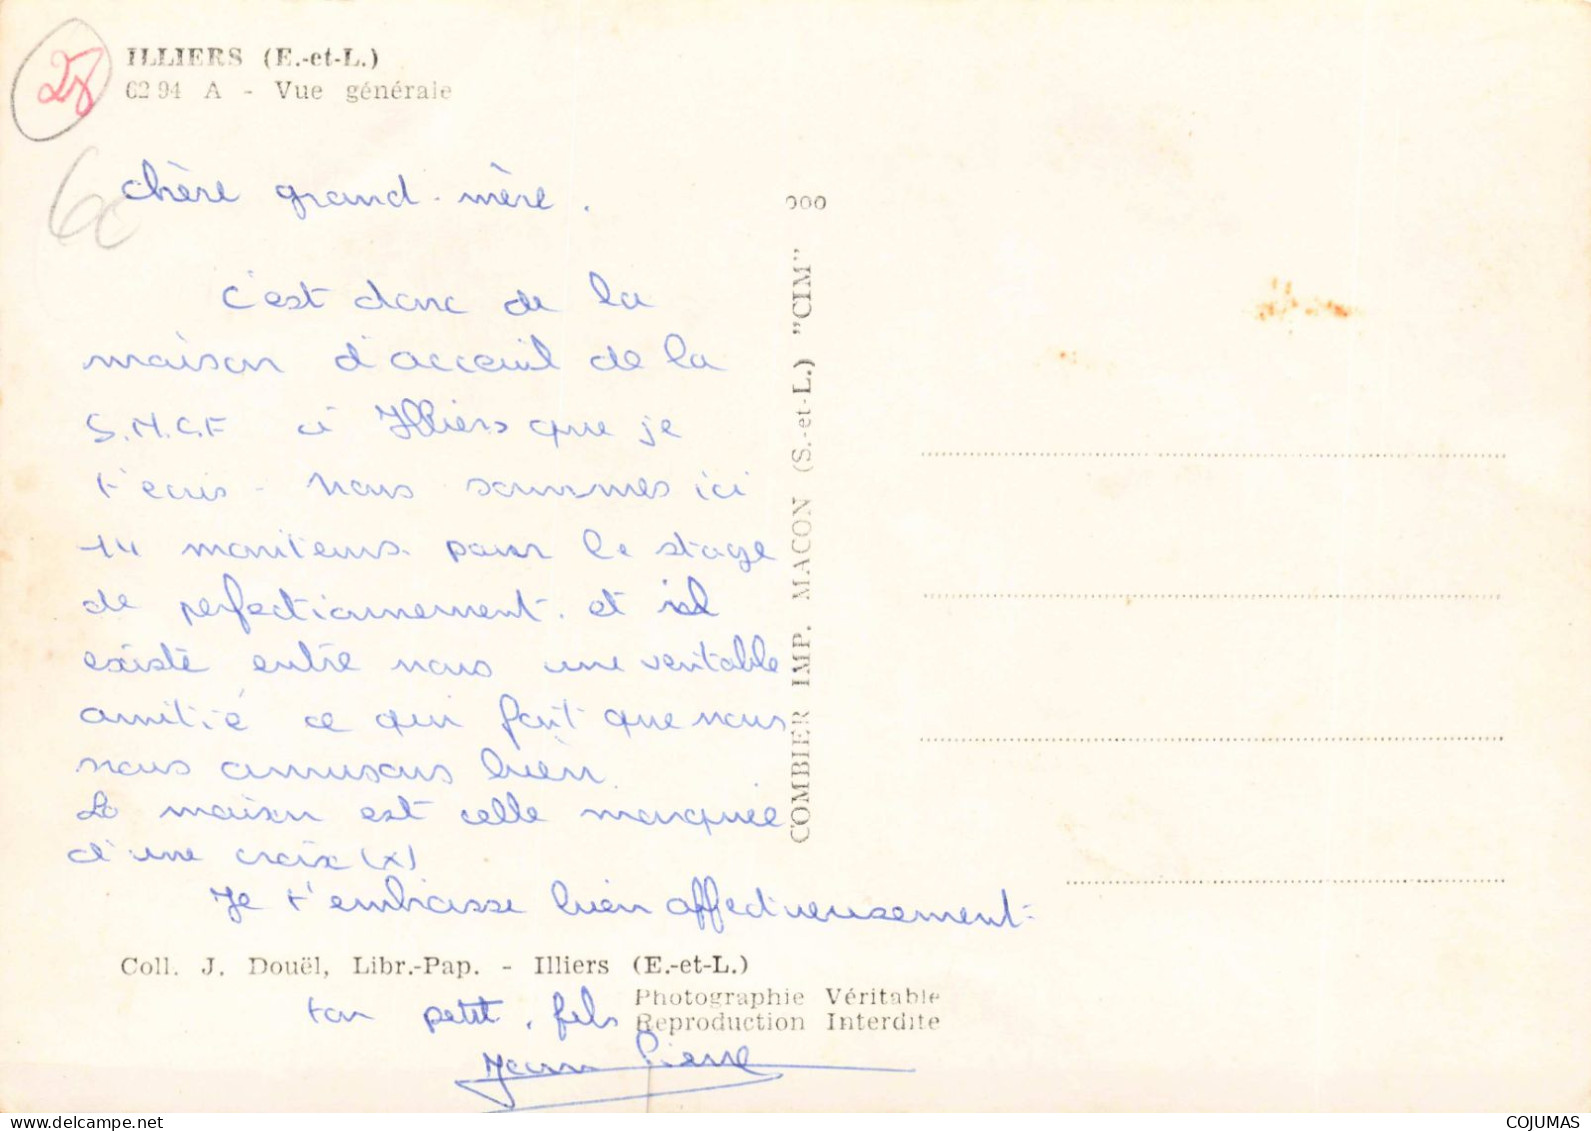 28
ILLIERS (E.-et-L.)
62 94 A - Vue générale
6c
chère grand-mère.
c'est donc de la
maison d'acceuil de la
S.N.C.F à Illiers que je
t'écris - Nous sommes ici
14 moniteurs pour le stage
de perfectionnement. et il
existe entre nous une veritable
amitié ce qui fait que nous
nous amusons bien.
La maison est celle marquée
d'une croix (x)
Je t'embrasse bien affectueusement.
Coll. J. Douël, Libr.-Pap. - Illiers (E.-et-L.)
ton petit. fils
Photographie Véritable
Reproduction Interdite
Jean Pierre
COMBIER IMP. MACON (S.-et-L.) "CIM"
COJUMAS